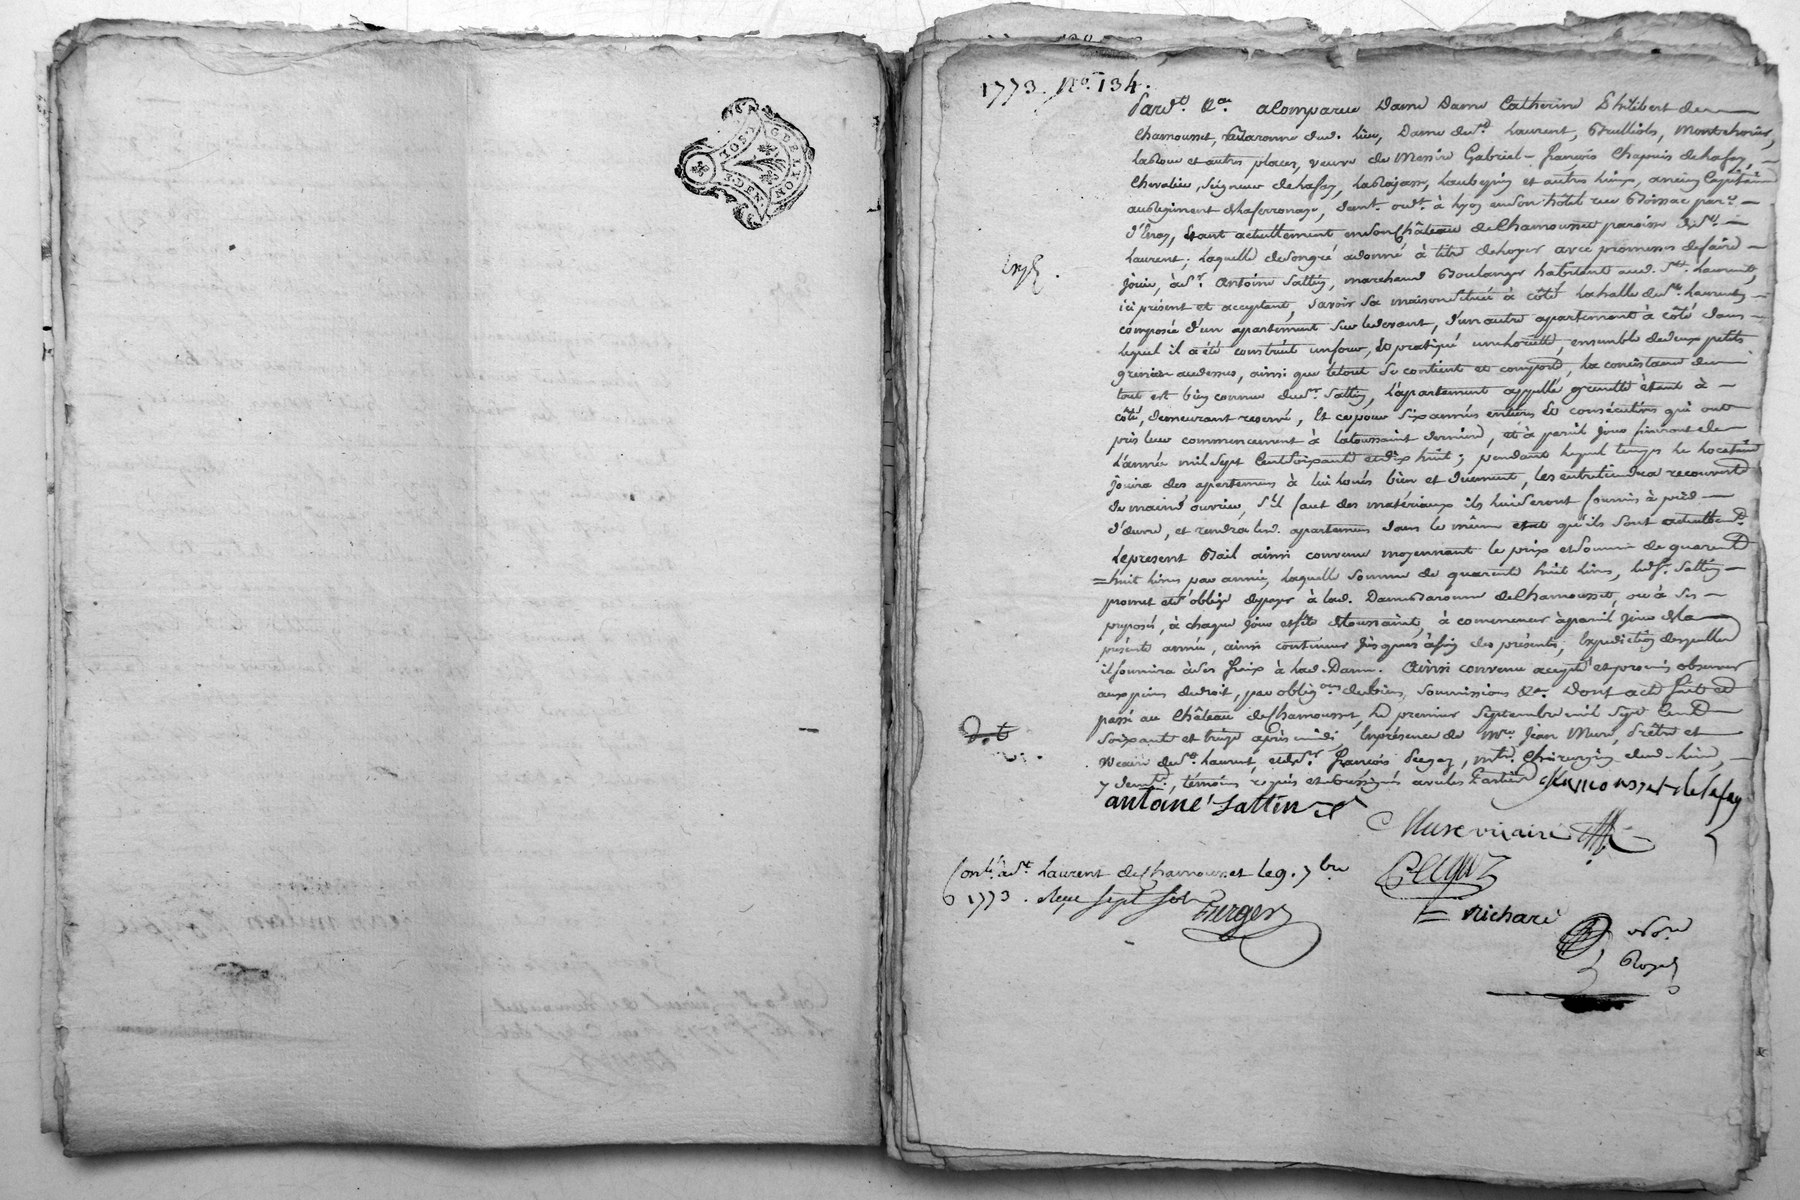 GEN. DE LYON
1773. No. 134.
Pardt. &a. acomparue Dame Dame Catherine Philibert de
Chamousset, Baronne dud. lieu, Dame de St. Laurent, Brulliols, Montrhomier,
laRoue et autres places, veuve de Messire Gabriel-françois Chapuis delafay,
Chevalier, Seigneur delafay, laubepin et autres lieux, ancien Capitaine
auRegiment, demt. ordt. à Lyon enson hôtel rue Boissac parr.
d'Enay, étant actuellement enson Château deChamousset paroisse de St.
Laurent; laquelle desongré adonné à titre deloyer avec promesses defaire
jouir, à Sr. Antoine Sattin, marchand Boulanger habitant aud. St. Laurent,
ici présent et acceptant, savoir sa maison située à côté lahalle de St. Laurent,
composée d'un apartement sur ledevant, d'un autre apartement à côté dans
lequel il a été construit unfour, & pratiqué, ensemble dedeux petits
greniers audessus, ainsi que letout se contient et comporte, la consistance du
tout est bien connue dud Sr. Sattin, l'apartement appellé grenette étant à
côté, demeurant reservé, Et cepour six années entieres & consécutives qui ont
pris leur commencement à latoussaint derniere, et à pareil jour finiront de
l'année mil sept Cent soixante etdix huit; pendant lequel temps le locataire
jouira des apartemens à lui loués bien et duement, les entretiendra recouverts
de maind'ouvrier, s'il faut des matériaux ils lui seront fournis à pied
d'œuvre, et rendra lesd. apartemens dans le même etat qu'ils sont actuellemt.
Leprésent Bail ainsi convenu moyennant le prix etsomme de quarente
=huit livres par année, laquelle somme de quarente huit livres, led Sr. Sattin
promet et s'oblige depayer à lad. Dame Baronne deChamousset, ou à ses
preposés, à chaque jour etfête deToussaint, à commencer àpareil jour dela
présente année, ainsi continuer jusques àfin des présentes, Expedition desquelles
il fournira à ses fraix à lad. Dame. Ainsi convenu accepté etpromis observer
aux peines dedroit, par obligons. debiens, soumissions &a. Dont acte fait et
passé au Château deChamousset, le premier septembre mil sept Cent
soixante et treize après midi, En présence de Mre. Jean Mure, Prêtre et
Vicaire de St. Laurent, et de Sr. françois Pecgoz, mtre. Chirurgien dud. lieu,
y demt., témoins requis etsoussignés avec les Parties
Chamousset delafay
antoine sattin
Mure vicaire
Contlé. à St. Laurent deChamousset le 9. 7bre
1773. Reçu sept sols
Pecgoz
richard
Nore
Royal